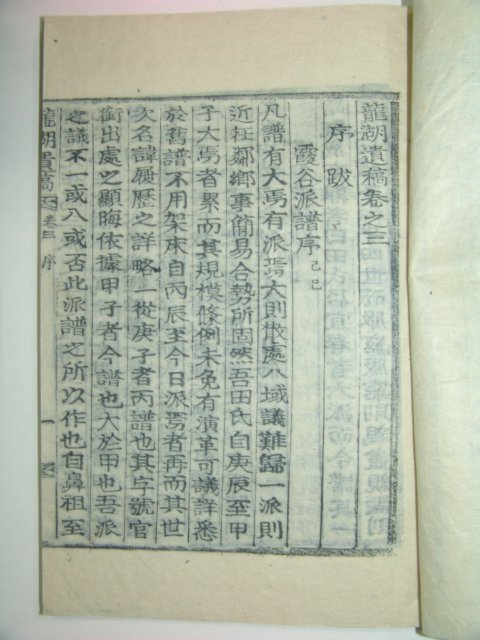 龍湖遺稿卷之三
序跋
霞谷派譜序 己巳
凡譜有大焉有派焉大則散處八域議難歸一派則
近在鄰鄉事簡易合勢所固然吾田氏自庚辰至甲
子大焉者聚而其規模條例未免有沿革可議詳悉
於舊譜不用架床自丙辰至今日派焉者再而其世
次名諱履歷之詳略一從庚子者丙譜也其字號官
銜出處之顯晦依據甲子者今譜也大於甲也吾派
之議不一或入或否此派譜之所以作也自鼻祖至
龍湖遺稿 卷三 序 一